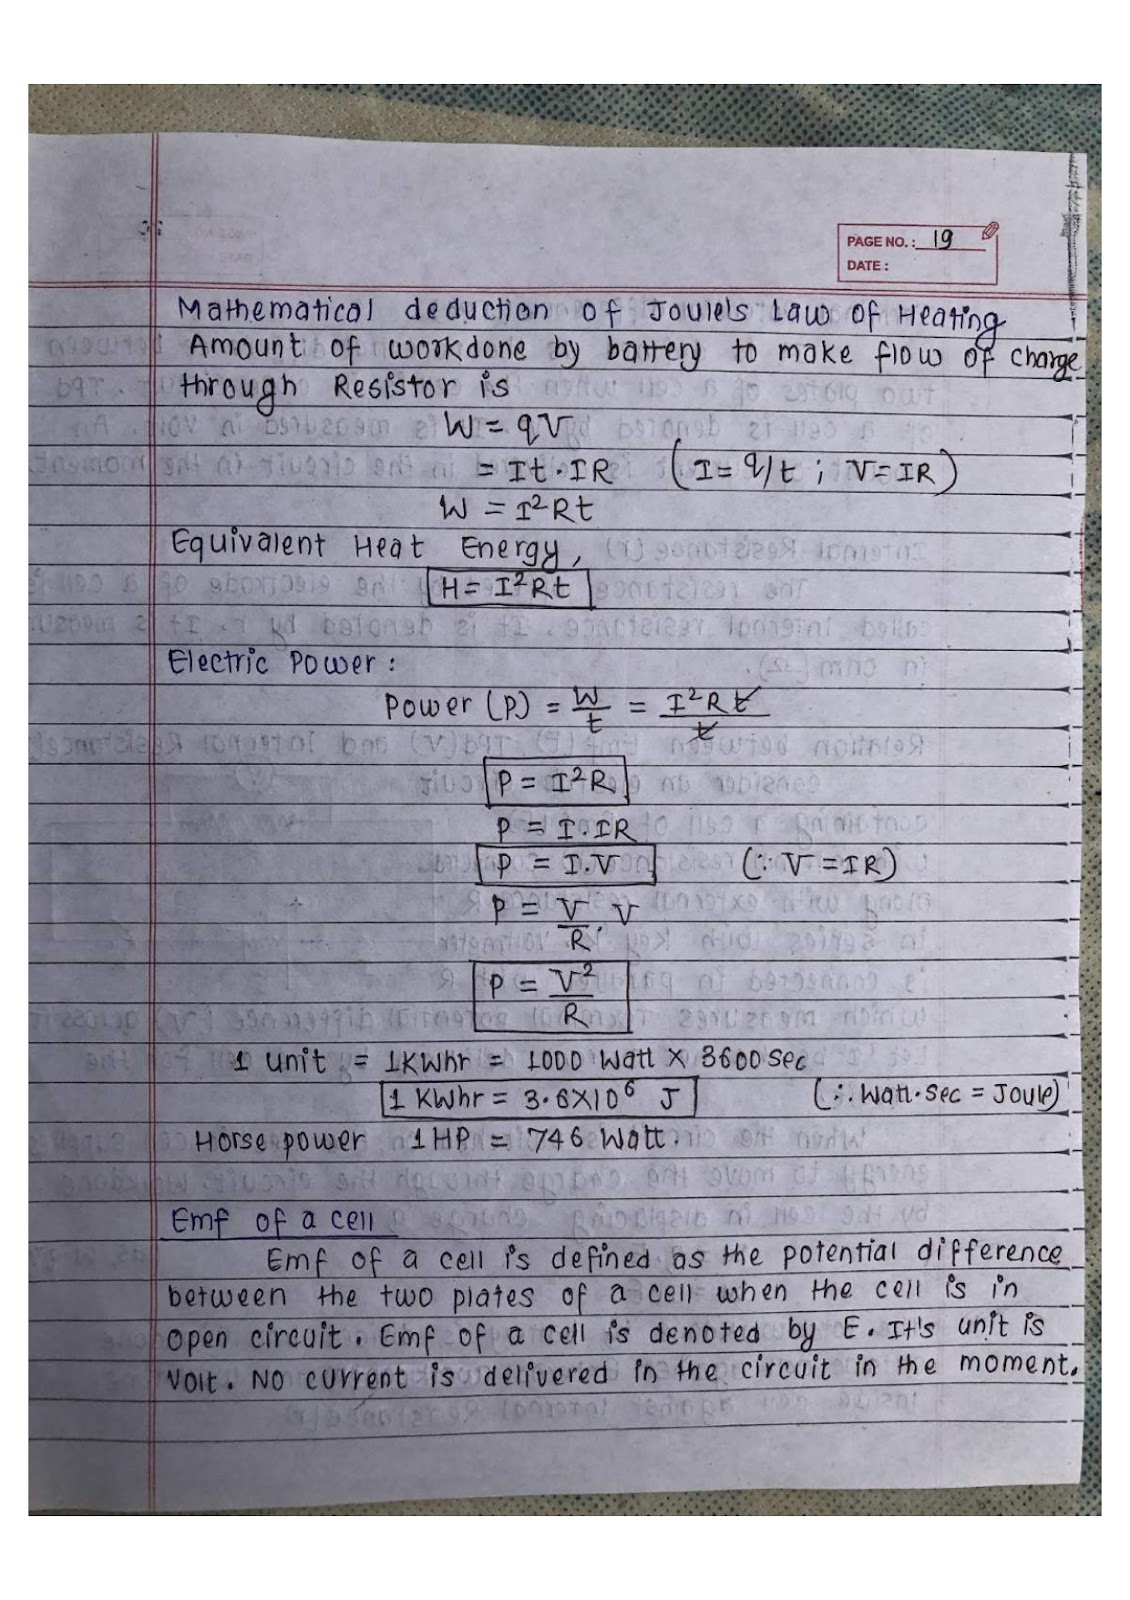 PAGE NO.: 19
DATE :
Mathematical deduction of Joulels Law of Heating
Amount of workdone by battery to make flow of charge
through Resistor is
W = qV
= It·IR (I = q/t ; V = IR)
W = I²Rt
Equivalent Heat Energy,
H = I²Rt
Electric Power :
Power (P) = W/t = I²Rt/t
P = I²R
P = I.IR
P = I.V (∵ V = IR)
P = V/R . V
P = V²/R
1 unit = 1KWhr = 1000 Watt × 3600 sec
1 KWhr = 3.6×10⁶ J (∴ Watt·Sec = Joule)
Horse power 1 HP = 746 Watt.
Emf of a cell
Emf of a cell is defined as the potential difference
between the two plates of a cell when the cell is in
open circuit. Emf of a cell is denoted by E. It's unit is
Volt. No current is delivered in the circuit in the moment.